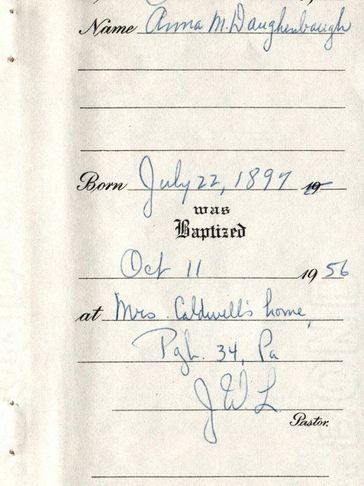 Name Anna M. Daughenbaugh
Born July 22, 1897 19
was
Baptized
Oct 11 1956
at Mrs. Caldwell's home,
Pgh. 34, Pa
J W L
Pastor.